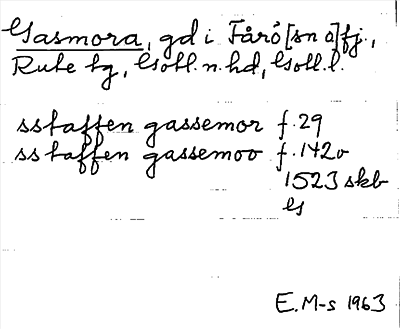 Gasmora, gd i Fårö [sn o] fj.,
Rute tg, Gotl. n. hd, Gotl. l.
sstaffen gassemor f. 29
sstaffen gassemoo f. 142v
1523 skb
Gs
E. M-s 1963